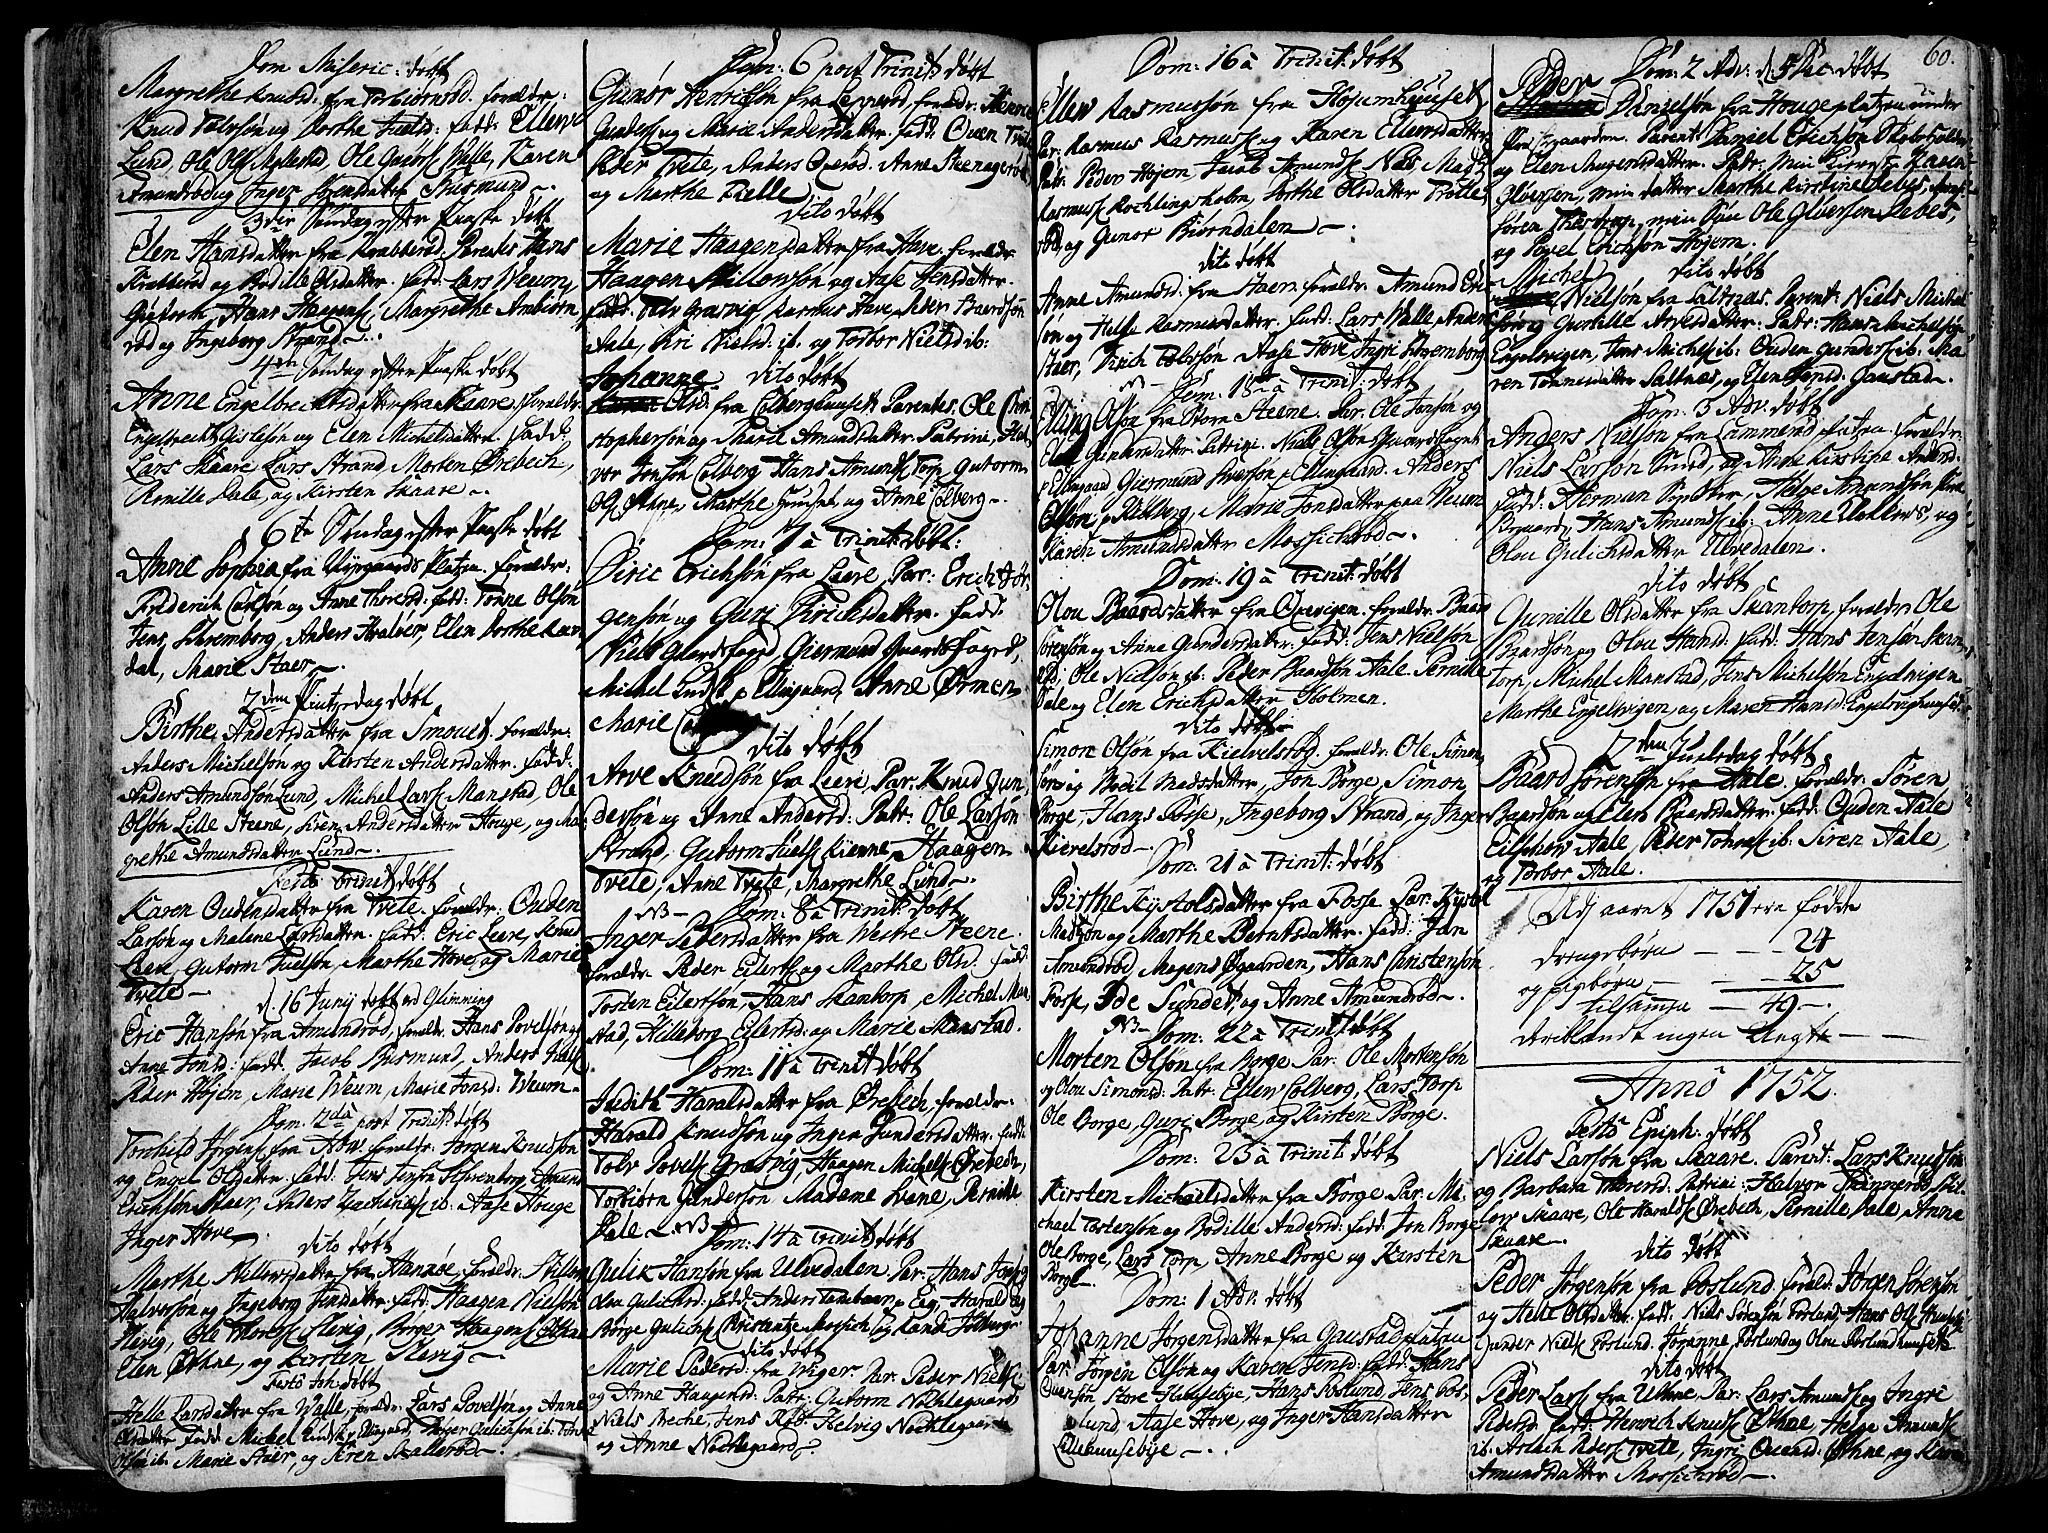 Dom Miseric: døbt
Margrethe Knudsd: fra Torbiørnsrød. foreldr:
Knud Tolvsøn og Dorthe Juelsd: fadd: Ellew
Lund, Ole Ols Myllestad, Ole Walle, Karen
Amundrød og Inger Sørensdatter Busmund
3der Søndag efter Paaske døbt
Elen Hansdatter fra Krabberød. Parentes Hans
Krabberød og Bodille Olsdatter. fadd: Lars Weum
Hans Haagens, Margrethe Ambiørn
rød og Ingeborg Strand
4de Søndag efter Paaske døbt
Anne Engelbrechtsdatter fra Skaare. foreldr:
Engelbrecht Gislesøn og Elen Michelsdatter. fadd:
Lars Skaare, Lars Strand, Morten Ørebech,
Pernille Dale, og Kirsten Skaare
6te Søndag efter Paaske døbt
Anne Sophia fra Platzen. foreldr:
Frederich Carlsøn og Anne Thoresd: fadd: Tønne Olsøn
Jens Schremborg, Anders Halver, Elen Dorthe
dal, Marie Staer
2den Pintzedag døbt
Birthe Andersdatter fra Smouet. foreldr:
Anders Michelsøn og Kirsten Andersdatter. fadd:
Anders Amundsøn Lund, Michel Lars Manstad, Ole
Olsøn Lille Steene, Siren Andersdatter Houge, og Mar
grethe Amundsdatter Lund
Festo Trinit døbt
Karen Oudensdatter fra Tvete. foreldr: Ouden
Larsøn og Malene Larsdatter. fadd: Eric Leere, Knud
Leere, Gutorm Juelsøn, Marthe Hove og Marie
Tvete
d. 16 Junij døbt
Eric Hansøn fra Amundrød, foreldr: Hans Povelsøn og
Anne Jonsd: fadd: Jacob Busmund, Anders
Peder Højem, Marie Weum, Marie Jonsd: Weum
Dom: 2da post Trinit: døbt
Torchild Jørgens fra foreldr: Jørgen Knudsøn
og Engel Olsdatter. fadd: Jens Jensøn Schremborg, Amund
Erichsøn Staer, Anders Zachariæs ib: Aase Houge
Inger Hove
dito døbt
Marthe Stillowsdatter fra Hankøe, foreldr: Stillow
Halversøn og Ingeborg Jensdatter. fadd: Haagen Nielsøn
Slevig, Ole Thores Slevig, Børger Haagens Østhne
Elen Østhne, og Kirsten Slevig
Festo Joh: døbt
Helle Larsdatter fra Walle, foreldr: Lars Povelsøn og Anne
Olsdatter fadd: Michel Ellingaard, Børger Gulichsøn ib: Tønne
Olsøn ib: Marie Staer, og Siren Skallerød
Dom: 6 post Trinit: døbt
Gunor Henrichsøn fra Lepperød, foreldr: Henric
Gunders og Marie Andersdatter. fadd: Even Tvete
Peder Tvete, Anders Ørerød, Anne Steenagerød
og Marthe Fielle
dito døbt
Marie Haagensdatter fra Have. foreldr:
Haagen Stillowsøn og Aase Jensdatter.
fadd: Tolv Græsvig, Rasmus Have, Peder Baardsøn
Aale, Kri Nielsd: ib. og Torbor Nielsd ib:
Johanne dito døbt
Olsd: fra Colberghuuset. Parentes: Ole Chri
stophersøn og Marie Amundsdatter. Patrini, Hal
vor Jonsøn Colberg, Hans Amunds Torp, Gutorm
Ols Aane, Marthe Huuset og Anne Colberg
Dom: 7 a Trinit: døbt:
Diric Erichsøn fra Leere, Par: Erich Jør
gensøn og Guri Dirichsdatter. fadd:
Niels Gaardsfoged, Giermund Gaardsfoged,
Michel Ellingaard, Anne Ørmen
Marie
dito døbt
Arve Knudsøn fra Leere, Par: Knud Gun
dersøn og Anne Andersd: Patr: Ole Larsøn
Strand, Gutorm Juels Kienne, Haagen
Tvete, Anne Tvete, Margrethe Lund
NB Dom: 8 a Trinit: døbt
Inger Pedersdatter fra Westre Steene.
foreldr: Peder Eilerts og Marthe Olsd. fadd:
Torsten Eilertsøn, Hans Skantorp, Michel Man
stad, Hilleborg Eilertsd: og Marie Manstad.
Dom: 11 a Trinit døbt
Judith Haralsdatter fra Ørebech, foreldr:
Harald Knudsøn og Inger Gundersdatter. fadd:
Tolv Povels Græsvig, Haagen Michels Ørebech,
Torbiørn Gundersøn, Madame Svane, Pernille
Dale NB
Dom: 14 a Trinit: døbt
Gulik Hansøn fra Ulvedalen Par: Hans Jonsøn
Olou Gulichsd: fadd: Anders Eeg, Harald og
Børge Gulichs Christentze Mossich og Randi Solberg
dito døbt
Marie Pedersd: fra Wiger. Par. Peder Niels
og Anne Haagensd: Patr: Gutorm Nøchlegaard
Niels Beche, Jens Rød, Helvig Nøchlegaard
og Anne Nøchlegaard
Dom: 16 a Trinit: døbt
Ellew Rasmussøn fra Højumhuuset
Par: Rasmus Rasmus og Karen Ellewsdatter
Patr: Peder Højem, Jacob Amunds Næs, Mads
Rasmuss Kochlingsholm, Dorthe Olsdatter Trolle
rød og Gunor Biørndalen
dito døbt
Anne Amundsd: fra Haer. foreldr: Amund Eric
søn og Helle Rasmusdatter. fadd: Lars Walle, Anders
Staer, Dirich Tolvsøn, Aase Hove, Ingri Schremborg
NB Dom: 18 a Trinit: døbt
Elling Olsøn fra Store Steene. Par. Ole Jonsøn og
Elen Gundersdatter. Patrini. Niels Olsøn Gaardsfoget
p Ellingaard, Giermund Iversøn p Ellingaard. Anders
Olsøn p Kilberg, Marie Jonsdatter paa Weum
Karen Amundsdatter Mossichrød
Dom: 19 a Trinit: døbt
Olou Baardsdatter fra Ørevigen. foreldr: Baar
Sørensøn og Anne Gundersdatter. fadd: Jens Nielsøn
Ole Nielsøn ib: Peder Baardsøn Aale. Pernille
Dale og Elen Erichsdatter Holmen
dito døbt
Simon Olsøn fra Kielvelsrød. foreldr: Ole Simon
søn og Bodil Madsdatter, Jon Borge, Simon
Borge, Hans Bosse, Ingeborg Strand, og Inger
Kievelsrød
Dom: 21 a Trinit: døbt
Birthe Kystolsdatter fra Fosse Par: Kystol
Madsøn og Marthe Berntsdatter: fadd: Jan
Amundrød, Mogens Øgaarden, Hans Christensøn
Fosse, Ide Sundet og Anne Amundrød
NB Dom: 22 a Trinit: døbt
Morten Olsøn fra Borge Par: Ole Mortensøn
og Olou Simonsd: Patr: Ellew Colberg, Lars Torp
Ole Borge, Guri Borge og Kirsten Borge.
Dom: 23 a Trinit: døbt
Kirsten Michaelsdatter fra Borge Par: Mi
chael Torstensøn og Bodille Andersd: fadd: Jon Borge
Ole Borge, Lars Torp, Anne Borge og Kirsten
Borge
Dom: 1 Adv: døbt
Johanne Jørgensdatter fra Gaustadplatzen
Par: Jørgen Olsøn og Karen Jensd: fadd: Hans
Evensøn Store Huusebye, Hans Poslund, Jens Pos
lund, Aase Hove, og Inger Hansdatter
Lillehuusebye
60.
Dom: 2 Adv: d: 5 Dec: døbt
Peder
Danielsøn fra Hougeplatzen under
Præstegaarden. Parent: Daniel Erichsøn Skoleholder
og Elen Mogensdatter. Patr: Min Karen
Gløersen, min datter Marthe Kirstine Debes,
Søren Thestrup, min Søn Ole Gløersen Debes,
og Povel Erichsøn Højem.
Michel dito døbt
Nielsøn fra Saltnæs. Parent: Niels Michel
søn og Gunille Arvesdatter. Patr: Hans Michelsøn
Engelsvigen, Jens Michels ib: Ouden Gunders ib: Ma
ren Tønnesdatter Saltnæs, og Elen Gaustad
Dom: 3 Adv. døbt
Anders Nielsøn fra Lammerød platzen foreldr:
Niels Larsøn Smed, og Anne Kirstine Andersd:
fadd: Herman Helge Amundsøn
Hans Amunds ib: Anne og
Olou Gulichsdatter Ulvedalen.
dito døbt
Gunille Olsdatter fra Skantorp, foreldr: Ole
Baardsøn og Olou Hansd: fadd: Hans Jensøn Skan
torp, Michel Manstad, Jens Michelsøn Engelsvigen
Marthe Engelsvigen, og Maren Hansd: Engelsvighuuset
2den Juledag døbt
Baard Sørensøn fra Aale. foreldr: Søren
Baardsøn og Elen Baarsdatter. fadd: Ouden Aale
Eilschow Aale, Peder Tønnes ib: Siren Aale,
og Torbor Aale.
Udj aaret 1751 ere fødde
drengebørn — 24
og pigbørn — 25
tilsamen — 49
deriblandt ingen Uægte
Anno 1752
Festo Epiph: døbt
Niels Larsøn fra Skaare. Parent: Lars Knudsøn
og Barbara Thoresd: Patrini: Halvor Skinnerød Stil
lov Skaare, Ole Haralds Ørebech, Pernille Dale, Anne
Skaare
dito døbt
Peder Jørgensøn fra Poslund foreldr: Jørgen Sørensøn
og Helle Olsdatter. fadd: Niels Sørensøn Poslund, Hans Ols
Gunder Niels Poslund. Johanne Poslund og Olou Poslundhuuset
dito døbt
Peder Lars fra Uthne, Par: Lars Amunds og Ingri
Pedersd: fadd: Henrich Knuds Østhne, Helge Amunds
ib: Aslach Peders Tvete, Ingri Østhne, og Karen
Amundsdatter Mossichrød